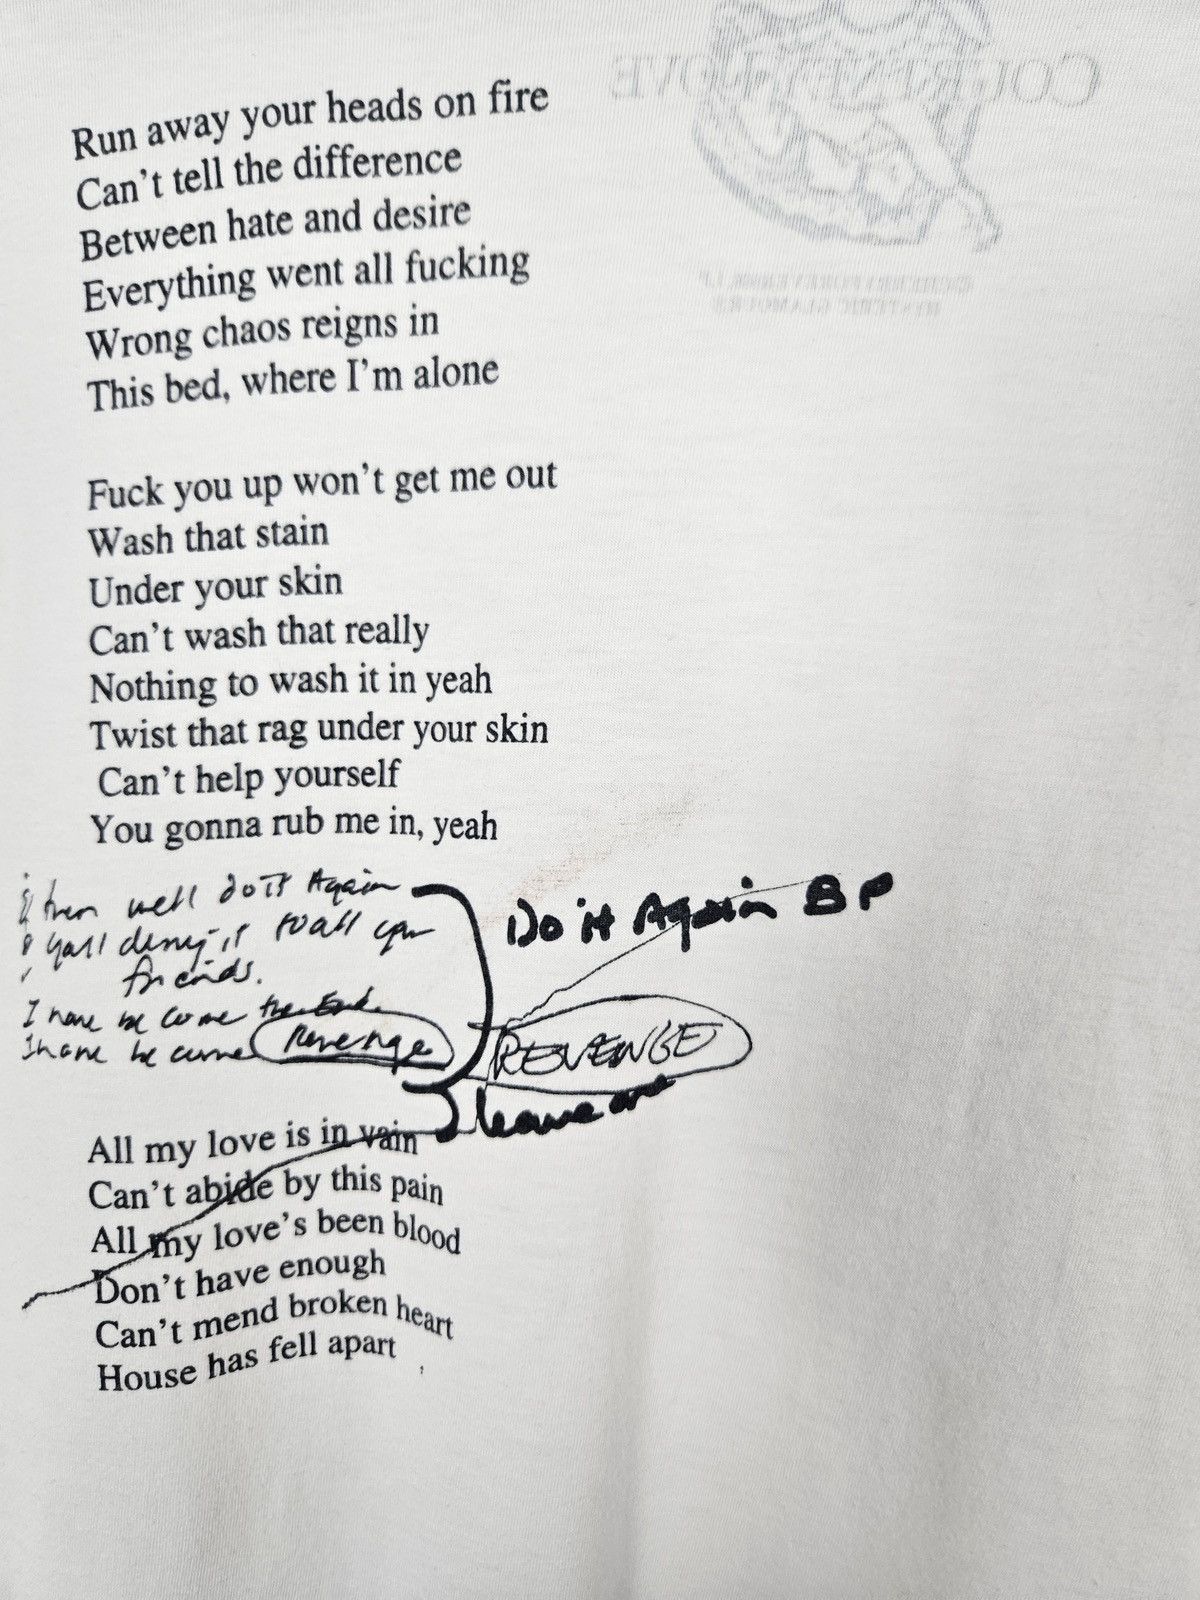 COURTNEY LOVE
Run away your heads on fire
Can't tell the difference
Between hate and desire
Everything went all fucking
Wrong chaos reigns in
This bed, where I'm alone
Fuck you up won't get me out
Wash that stain
Under your skin
Can't wash that really
Nothing to wash it in yeah
Twist that rag under your skin
Can't help yourself
You gonna rub me in, yeah
then well do it Again
Do it Again BP
yall deny it to all your
friends.
I have be come the End
I have be come Revenge
REVENGE
leave out
All my love is in vain
Can't abide by this pain
All my love's been blood
Don't have enough
Can't mend broken heart
House has fell apart